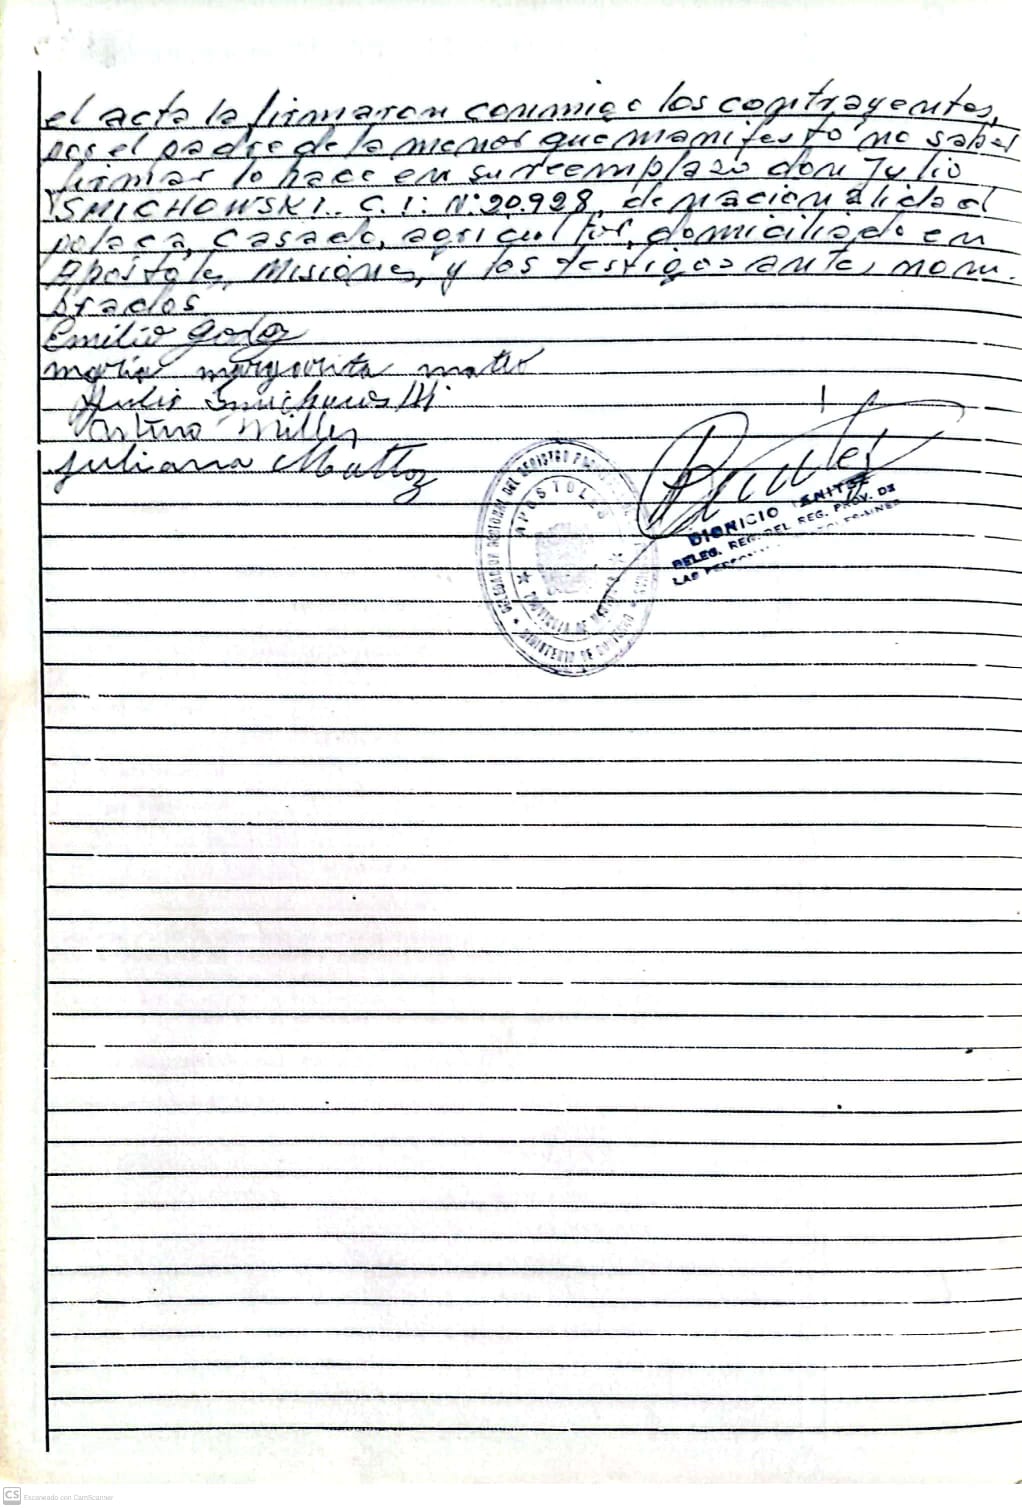 el acta la firmaron conmigo los contrayentes,
por el padre de la menor que manifestó no saber
firmar lo hace en su reemplazo don Julio
SMICHOWSKI.. C. I: N: 20.928, de nacionalidad
polaca, casado, agricultor, domiciliado en
Apóstoles, Misiones, y los testigos antes nom-
brados.
Emilio
maria margarita
Julio Smichowski
Arturo Miller
Juliana Mattoz
DELEGADOR REGIONAL DEL REGISTRO
APOSTOLES
PROVINCIA DE MISIONES
MINISTERIO DE GOBIERNO
DIONICIO
DELEG. REG. DEL REG. PROV. DE
LAS
Escaneado con CamScanner
CS